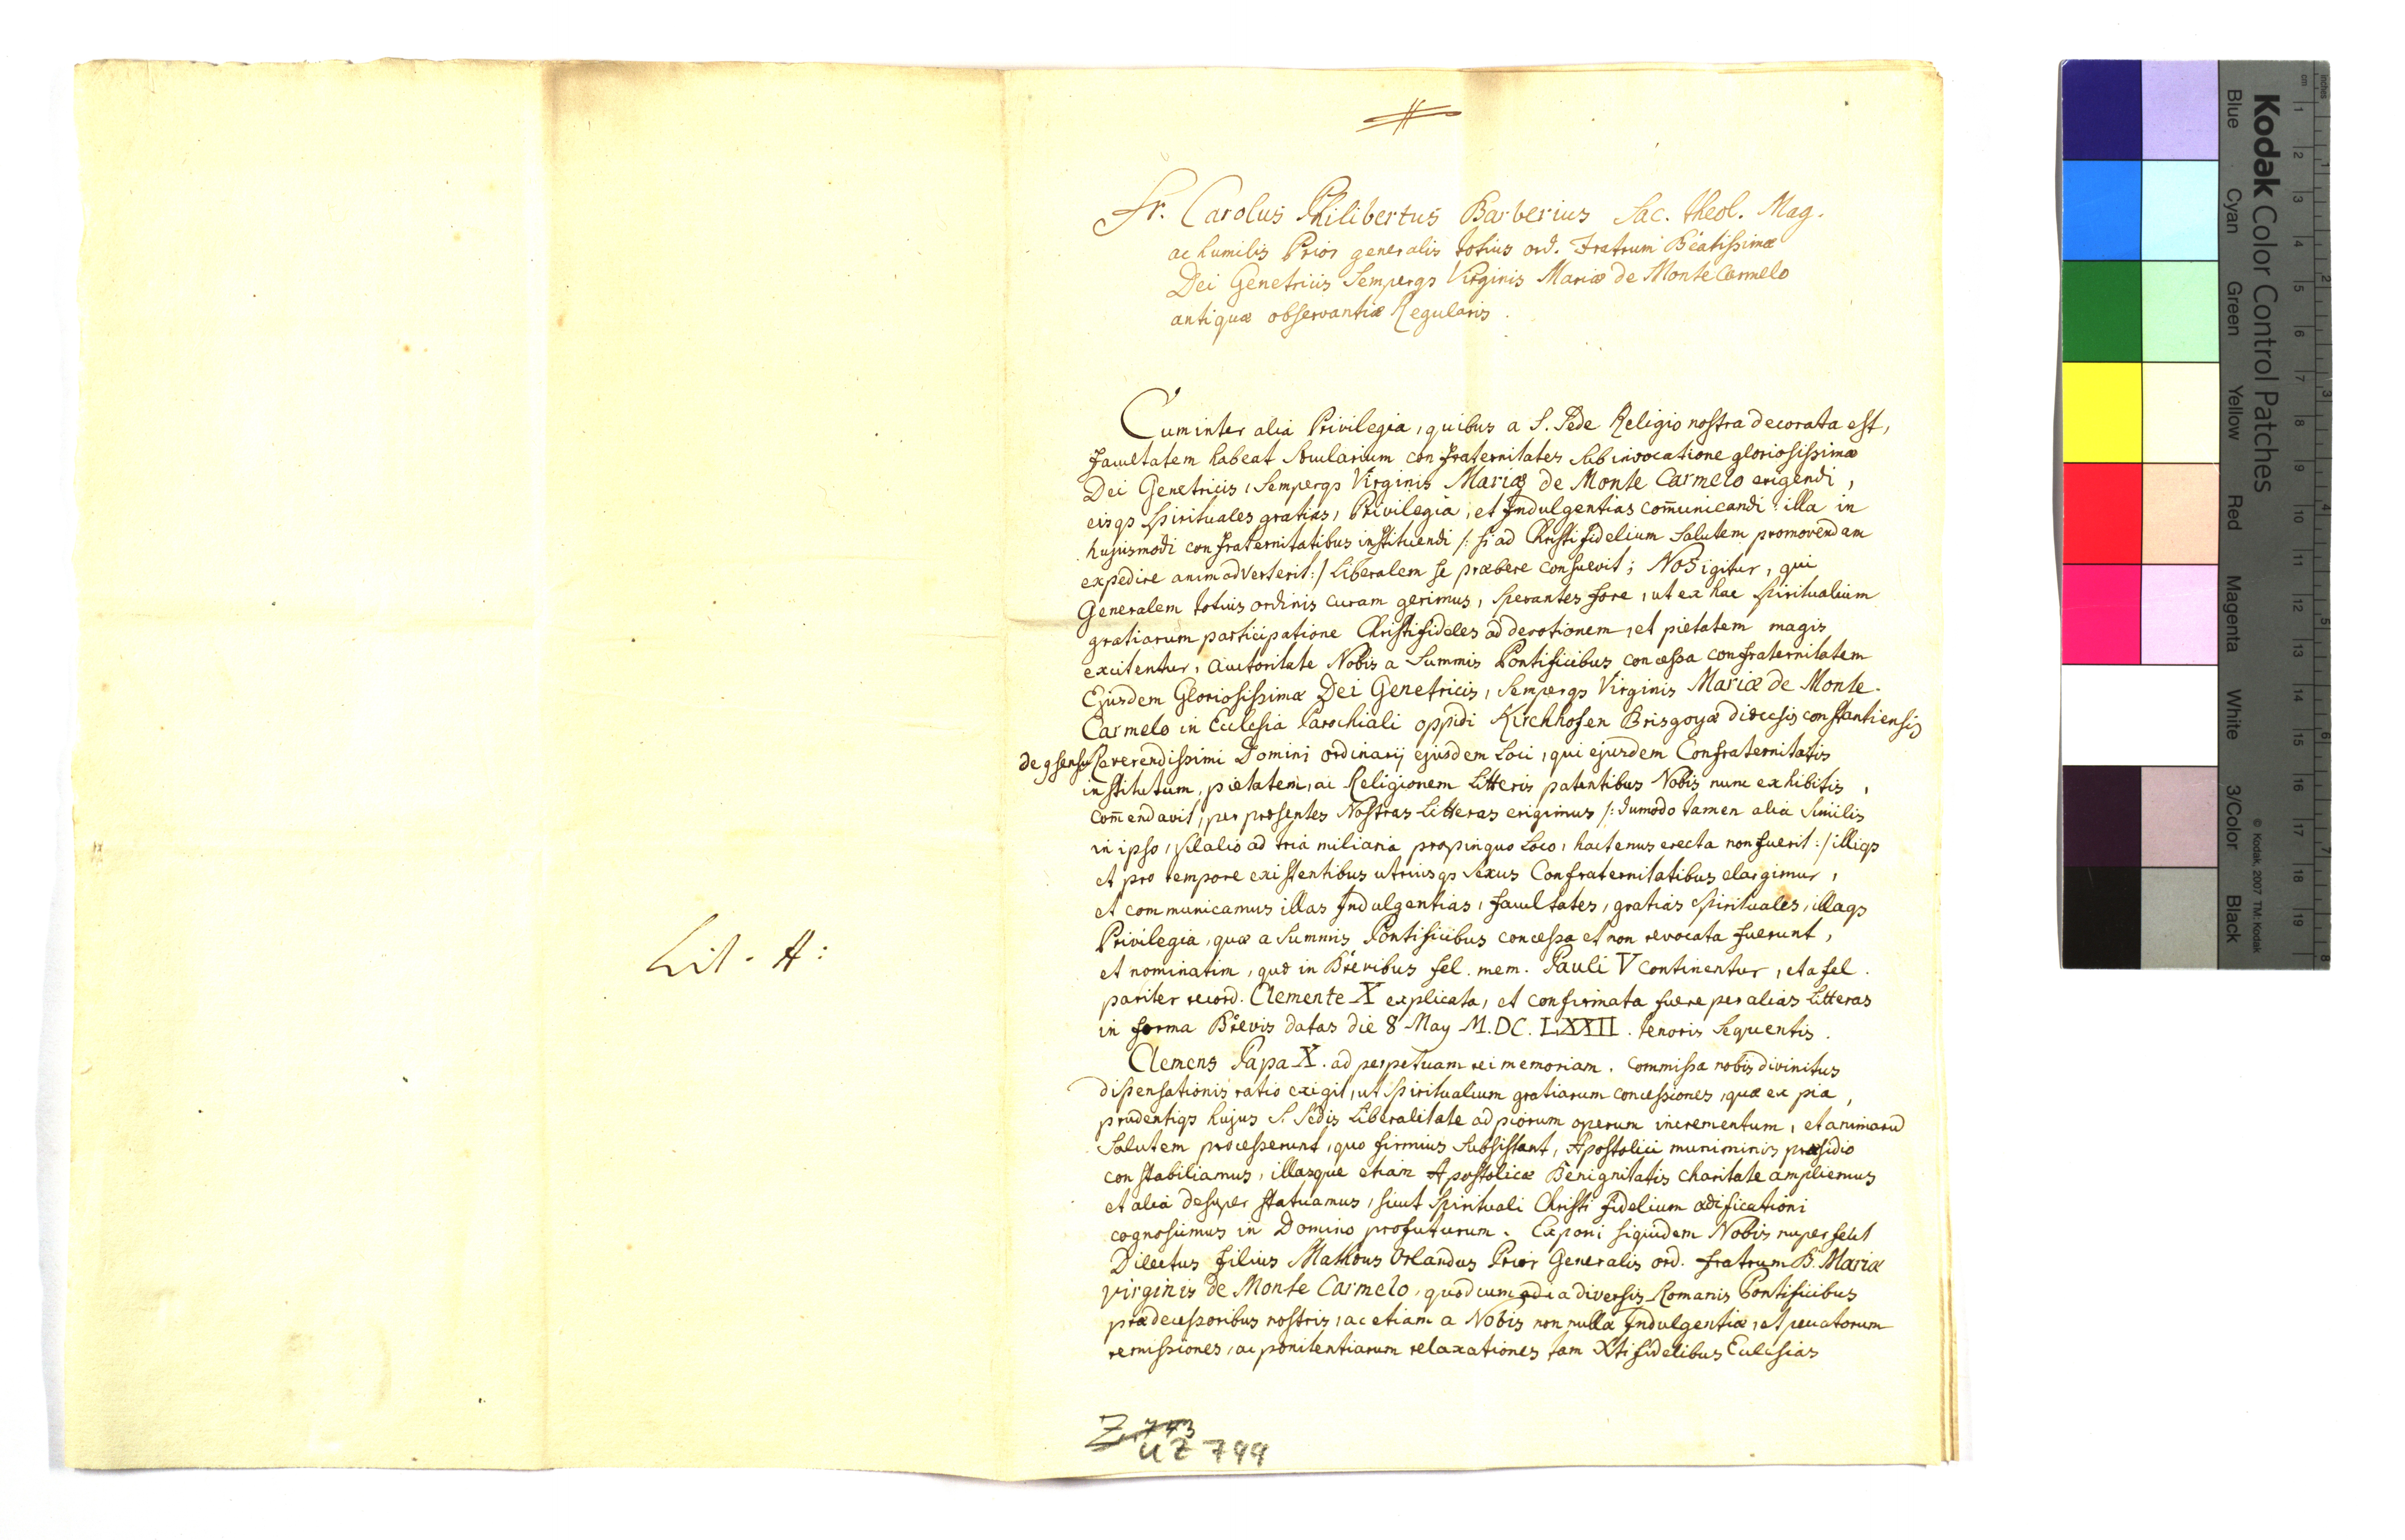 Lit. A:
Fr. Carolus Philibertus Barberius Sac. theol. Mag.
ac humilis Prior generalis totius ord. Fratrum Beatissimæ
Dei Genetricis Semperqs Virginis Mariæ de Monte Carmelo
antiquæ observantiæ Regularis.
Cum inter alia Privilegia, quibus a S. Sede Religio nostra decorata est,
facultatem habeat sæcularium confraternitates sub invocatione gloriosissimæ
Dei Genetricis, Semperqs Virginis Mariæ de Monte Carmelo erigendi,
eisqs spirituales gratias, Privilegia, et Indulgentias com̄unicandi illa in
hujusmodi confraternitatibus instituendi /: si ad Christi fidelium Salutem promovendam
expedire animadverterit :/ Liberalem se præbere consuevit; Nos igitur, qui
Generalem totius ordinis curam gerimus, sperantes fore, ut ex hac spiritualium
gratiarum participatione Christifideles ad devotionem, et pietatem magis
excitentur, auctoritate Nobis a Summis Pontificibus concessa confraternitatem
Ejusdem Gloriosissimæ Dei Genetricis, Semperqs Virginis Mariæ de Monte
Carmelo in Ecclesia Parochiali oppidi Kirchhofen Brisgoyæ diœcesis constantiensis
de qsensu Reverendissimi Domini ordinarij ejusdem Loci, qui ejusdem Confraternitatis
institutum, pietatem, ac Religionem Litteris patentibus Nobis nunc exhibitis,
com̄endavit, per præsentes Nostras Litteras erigimus /: dumodo tamen alia similis
in ipso, vel alio ad tria miliaria propinquo Loco, hactenus erecta non fuerit :/ illiqs
et pro tempore existentibus utriusqs sexus Confraternitatibus elargimur,
et communicamus illas Indulgentias, facultates, gratias spirituales, illaqs
Privilegia, quæ a Summis Pontificibus concessa et non revocata fuerunt,
et nominatim, quæ in Brevibus fel. mem. Pauli V continentur, et a fel.
pariter record. Clemente X explicata, et confirmata fuere per alias Litteras
in forma Brevis datas die 8 May M.DC.LXXII. tenoris sequentis.
Clemens Papa X. ad perpetuam rei memoriam. Commissa nobis divinitus
dispensationis ratio exigit, ut spiritualium gratiarum concessiones, quæ ex pia,
prudentiqs hujus S. Sedis Liberalitate ad piorum operum incrementum, et animarū
Salutem processerunt, quo firmius subsistant, Apostolici muniminis præsidio
constabiliamus, illasque etiam Apostolicæ Benignitatis charitate ampliemus
et alia desuper statuamus, sicut spirituali Christi fidelium ædificationi
cognoscimus in Domino profuturum. Exponi siquidem Nobis nuper fecit
Dilectus filius Mathæus Orlandus Prior Generalis ord. fratrum B. Mariæ
virginis de Monte Carmelo, quod cum a diversis Romanis Pontificibus
prædecessoribus nostris, ac etiam a Nobis non nullæ Indulgentiæ, et peccatorum
remissiones, ac pœnitentiarum relaxationes tam Xti fidelibus Ecclesias
Z. 773
UZ 799
Kodak Color Control Patches
Blue Cyan Green Yellow Red Magenta White 3/Color Black
© Kodak, 2007 TM: Kodak
inches 1 2 3 4 5 6 7 8
cm 1 2 3 4 5 6 7 8 9 10 11 12 13 14 15 16 17 18 19